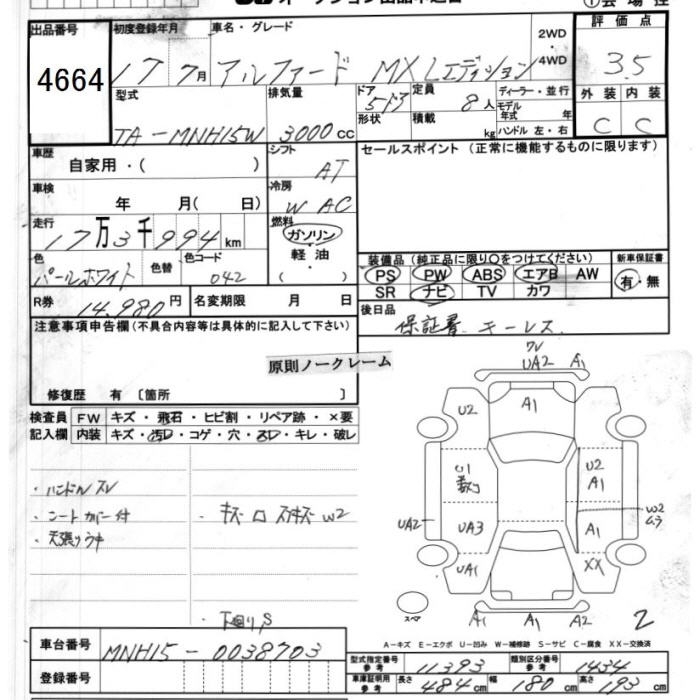 出品番号
4664
初度登録年月
17 7月
車名・グレード
アルファード MX Lエディション
2WD
4WD
評価点
3.5
外装 内装
C C
型式
TA-MNH15W
排気量
3000cc
ドア
5ドア
形状
定員
8人
積載
kg
ディーラー・並行
モデル年式 年
ハンドル 左・右
車歴
自家用・( )
シフト
AT
セールスポイント(正常に機能するものに限ります)
車検
年 月( 日)
冷房
W AC
走行
17万3千994km
燃料
ガソリン
軽油
( )
色
パールホワイト
色替
色コード
042
装備品(純正品に限り○をつけてください)
PS PW ABS エアB AW
SR ナビ TV カワ
新車保証書
有・無
R券
14,980円
名変期限 月 日
後日品
保証書 キーレス
注意事項申告欄(不具合内容等は具体的に記入して下さい)
原則ノークレーム
修復歴 有〔箇所 〕
検査員記入欄
FW キズ・飛石・ヒビ割・リペア跡・×要
内装 キズ・汚レ・コゲ・穴・スレ・キレ・破レ
・ハンドルスレ
・シートカバー付
・天張りウキ
・下回りS
UA2 A1
A1
U2
U1
U2
A1
UA2
UA3
A1
W2
ムラ
UA1
XX
スペア
A1 A1 A2
2
A-キズ E-エクボ U-凹み W-補修跡 S-サビ C-腐食 XX-交換済
車台番号
MNH15-0038703
登録番号
型式指定番号
参考
11393
類別区分番号
参考
1434
車庫証明用
参考
長さ 484cm 幅 180cm 高さ 193cm